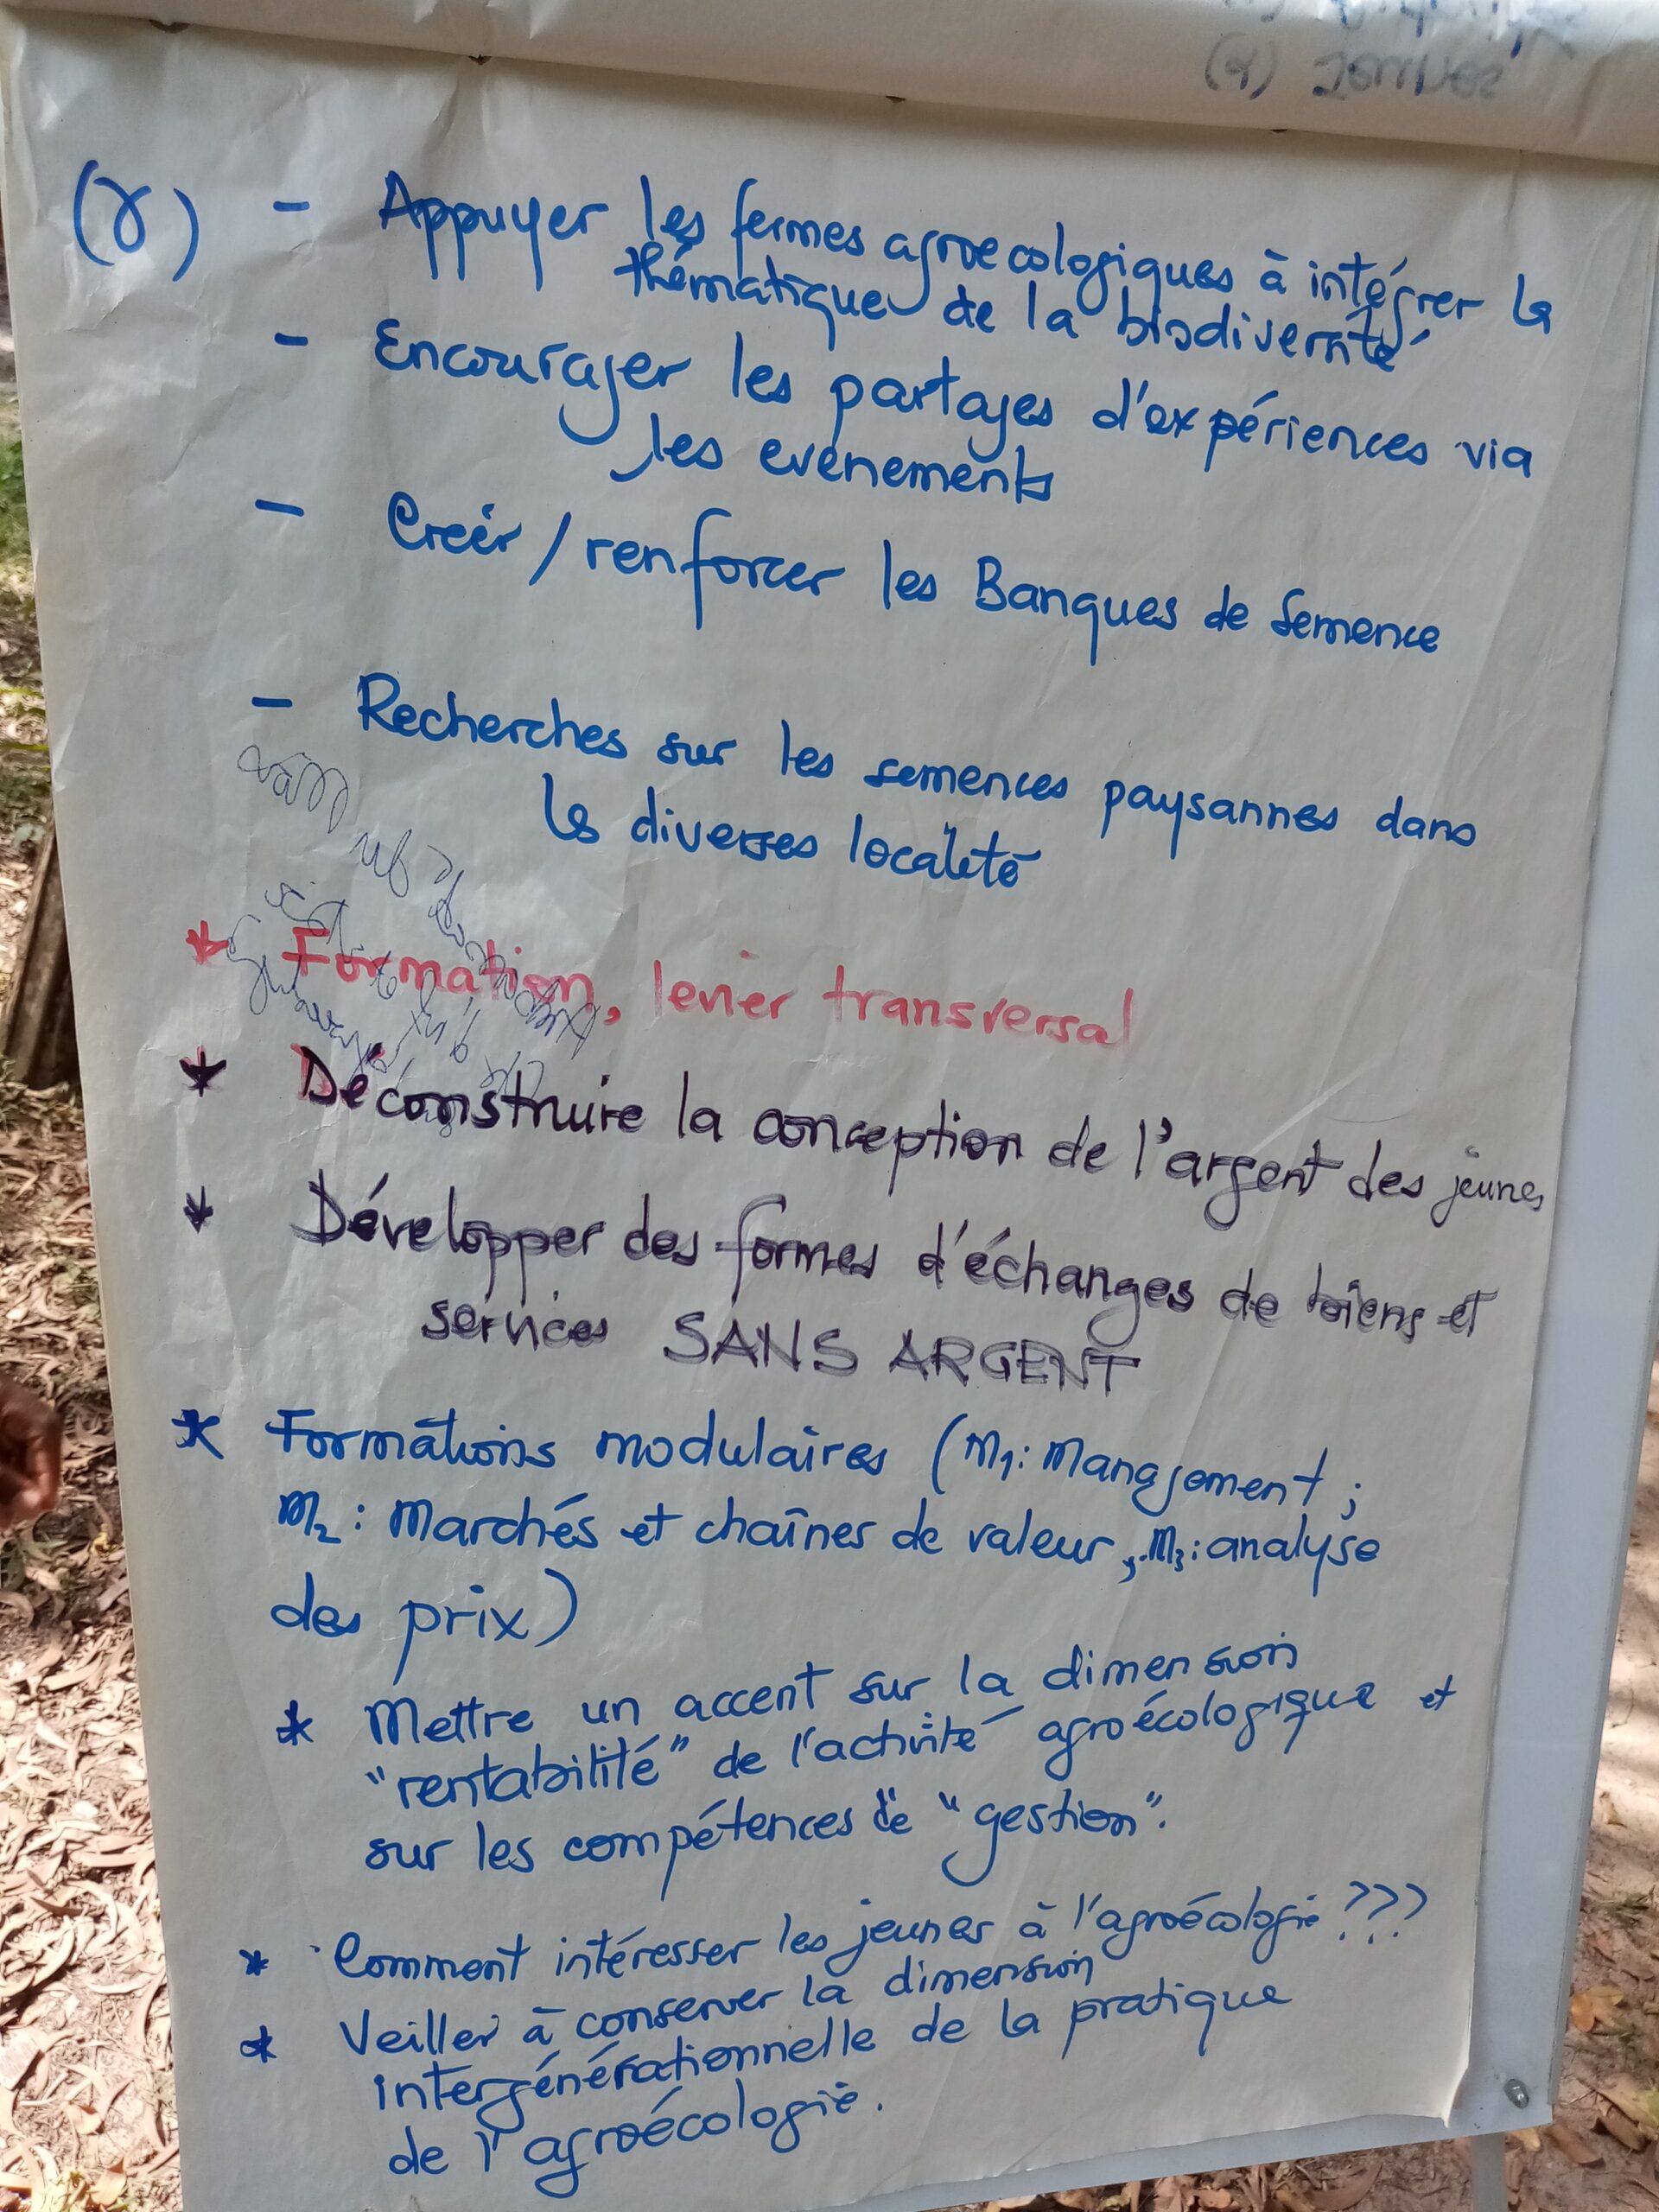 (γ) - Appuyer les fermes agroecologiques à intégrer la
thématique de la biodiversité
- Encourager les partages d'expériences via
les evenements
- Creér / renforcer les Banques de Semence
- Recherches sur les semences paysannes dans
les diverses localité
* Formation, levier transversal
* Déconstruire la conception de l'argent des jeunes
* Développer des formes d'échanges de biens et
services SANS ARGENT
* Formations modulaires (M1: Management ;
M2 : Marchés et chaînes de valeur ; M3 : analyse
des prix)
* Mettre un accent sur la dimension
"rentabilité" de l'activité agroécologique et
sur les compétences de "gestion".
* Comment intéresser les jeunes à l'agroécologie ???
* Veiller à conserver la dimension
intergénérationnelle de la pratique
de l'agroécologie.